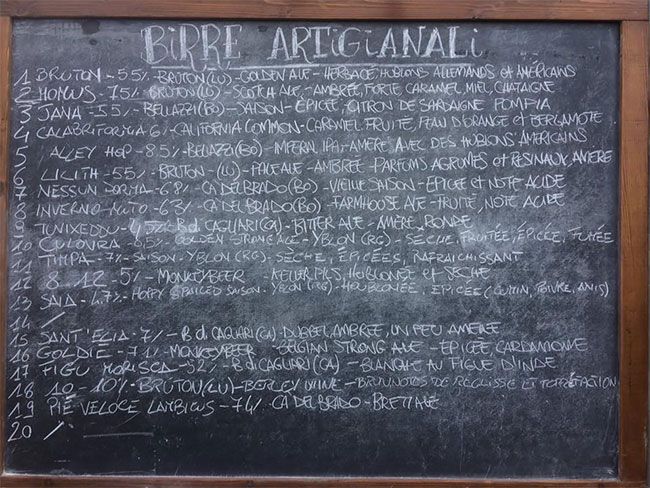 BIRRE ARTIGIANALI
1 BRUTON - 5.5% - BRUTON (LU) - GOLDEN ALE - HERBACÉ, HUBLONS ALLEMANDS et AMÉRICAINS
2 HOMUS - 7.5% - BRUTON (LU) - SCOTCH ALE - AMBRÉE, FORTE CARAMEL, MIEL, CHATAIGNE
3 JANA - 5.5% - BELLAZZI (BO) - SAISON - EPICÉE, CITRON DE SARDAIGNE POMPIA
4 CALABRIFORNIA 6% - CALIFORNIA COMMON - CARAMEL FRUITÉ, PEAU D'ORANGE et BERGAMOTE
5 ALLEY HOP - 8.5% - BELLAZZI (BO) - IMPERIAL IPA - AMÈRE AVEC DES HUBLONS AMERICAINS
6 LILITH - 5.5% - BRUTON - (LU) - PALE ALE - AMBRÉE - PARFUMS AGRUMES et RESINAUX, AMÈRE
7 NESSUN DORMA - 6.8% - CA DEL BRADO (BO) - VIEILLE SAISON - EPICÉE et NOTE ACIDE
8 INVERNO MUTO - 6.3% - CA DEL BRADO (BO) - FARMHOUSE ALE - FRUITÉ, NOTE ACIDE
9 TUNIXEDDU - B. di CAGLIARI (CA) - BITTER ALE - AMÈRE, RONDE
10 CULOVRIA - 8.5% - GOLDEN STRONG ALE - YBLON (RG) - SÈCHE, FRUITÉE, EPICÉE, FUMÉE
11 TIMPA - 7% - SAISON - YBLON (RG) - SÈCHE, EPICÉES, RAFRAICHISSANT
12 8.12 - 5% - MONKEYBEER - KELLER PILS, HOUBLONGE et SÈCHE
13 SAIA - 4.7% - HOPPY SPICED SAISON - YBLON (RG) - HOUBLONÉE, EPICÉE (CUMIN, POIVRE, ANIS)
14 /
15 SANT'ELIA - 7% - B. di CAGLIARI (CA) - DUBBEL, AMBRÉE, UN PEU AMÈRE
16 GOLDIE - 7.1% - MONKEYBEER - BELGIAN STRONG ALE - EPICÉE, CARDAMOME
17 FIGU MORISCA - 5.2% - B. di CAGLIARI (CA) - BLANCHE AU FIGUE D'INDE
18 10 - 10% - BRUTON (LU) - BERLEY WINE - BRUN, NOTES DE REGLISSE ET TORREFACTION
19 PIÈ VELOCE LAMBICUS - 7.4% - CA DEL BRADO - BRETT ALE
20 /